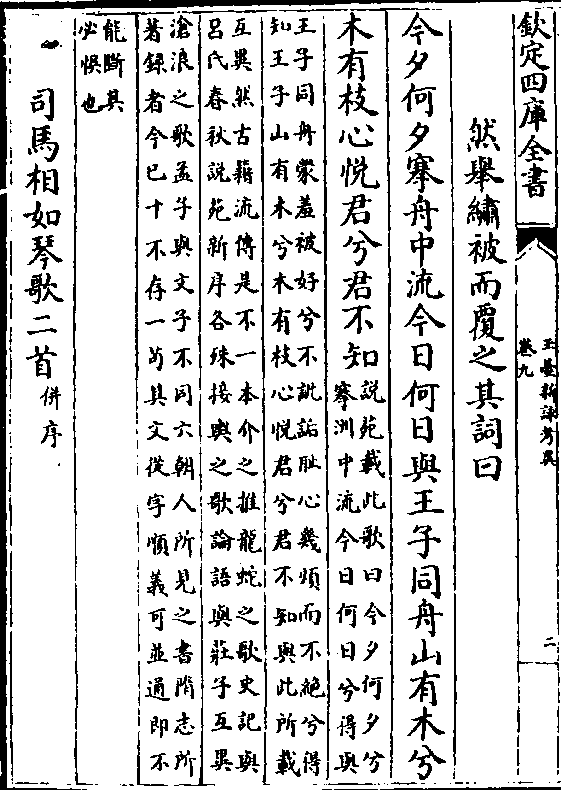 欽定四庫全書
玉臺新詠考異
卷九
二
然舉繡被而覆之其詞曰
今夕何夕搴舟中流今日何日與王子同舟山有木兮
木有枝心悅君兮君不知
說苑載此歌曰今夕何夕兮
搴洲中流今日何日兮得與
王子同舟蒙羞被好兮不訿詬耻心幾煩而不絕兮得
知王子山有木兮木有枝心悅君兮君不知與此所載
互異然古籍流傳是不一本介之推龍蛇之歌史記與
呂氏春秋說苑新序各殊接輿之歌論語與莊子互異
滄浪之歌孟子與文子不同六朝人所見之書隋志所
著録者今已十不存一茍其文從字順義可並通即不
能斷其
必悞也
司馬相如琴歌二首
併序